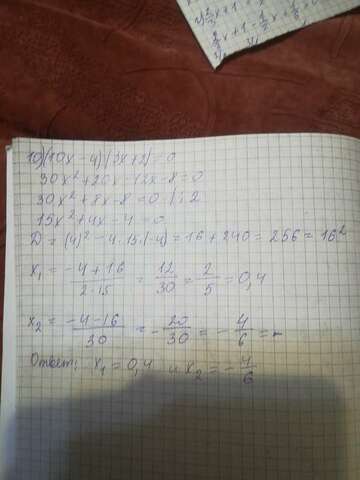 2/3 x + 1
10) (10x - 4)(3x + 2) = 0
30x² + 20x - 12x - 8 = 0
30x² + 8x - 8 = 0 | : 2
15x² + 4x - 4 = 0
D = (4)² - 4·15·(-4) = 16 + 240 = 256 = 16²
x₁ = (-4 + 16)/(2·15) = 12/30 = 2/5 = 0,4
x₂ = (-4 - 16)/30 = -20/30 = -4/6 = -
Ответ: x₁ = 0,4 и x₂ = -4/6